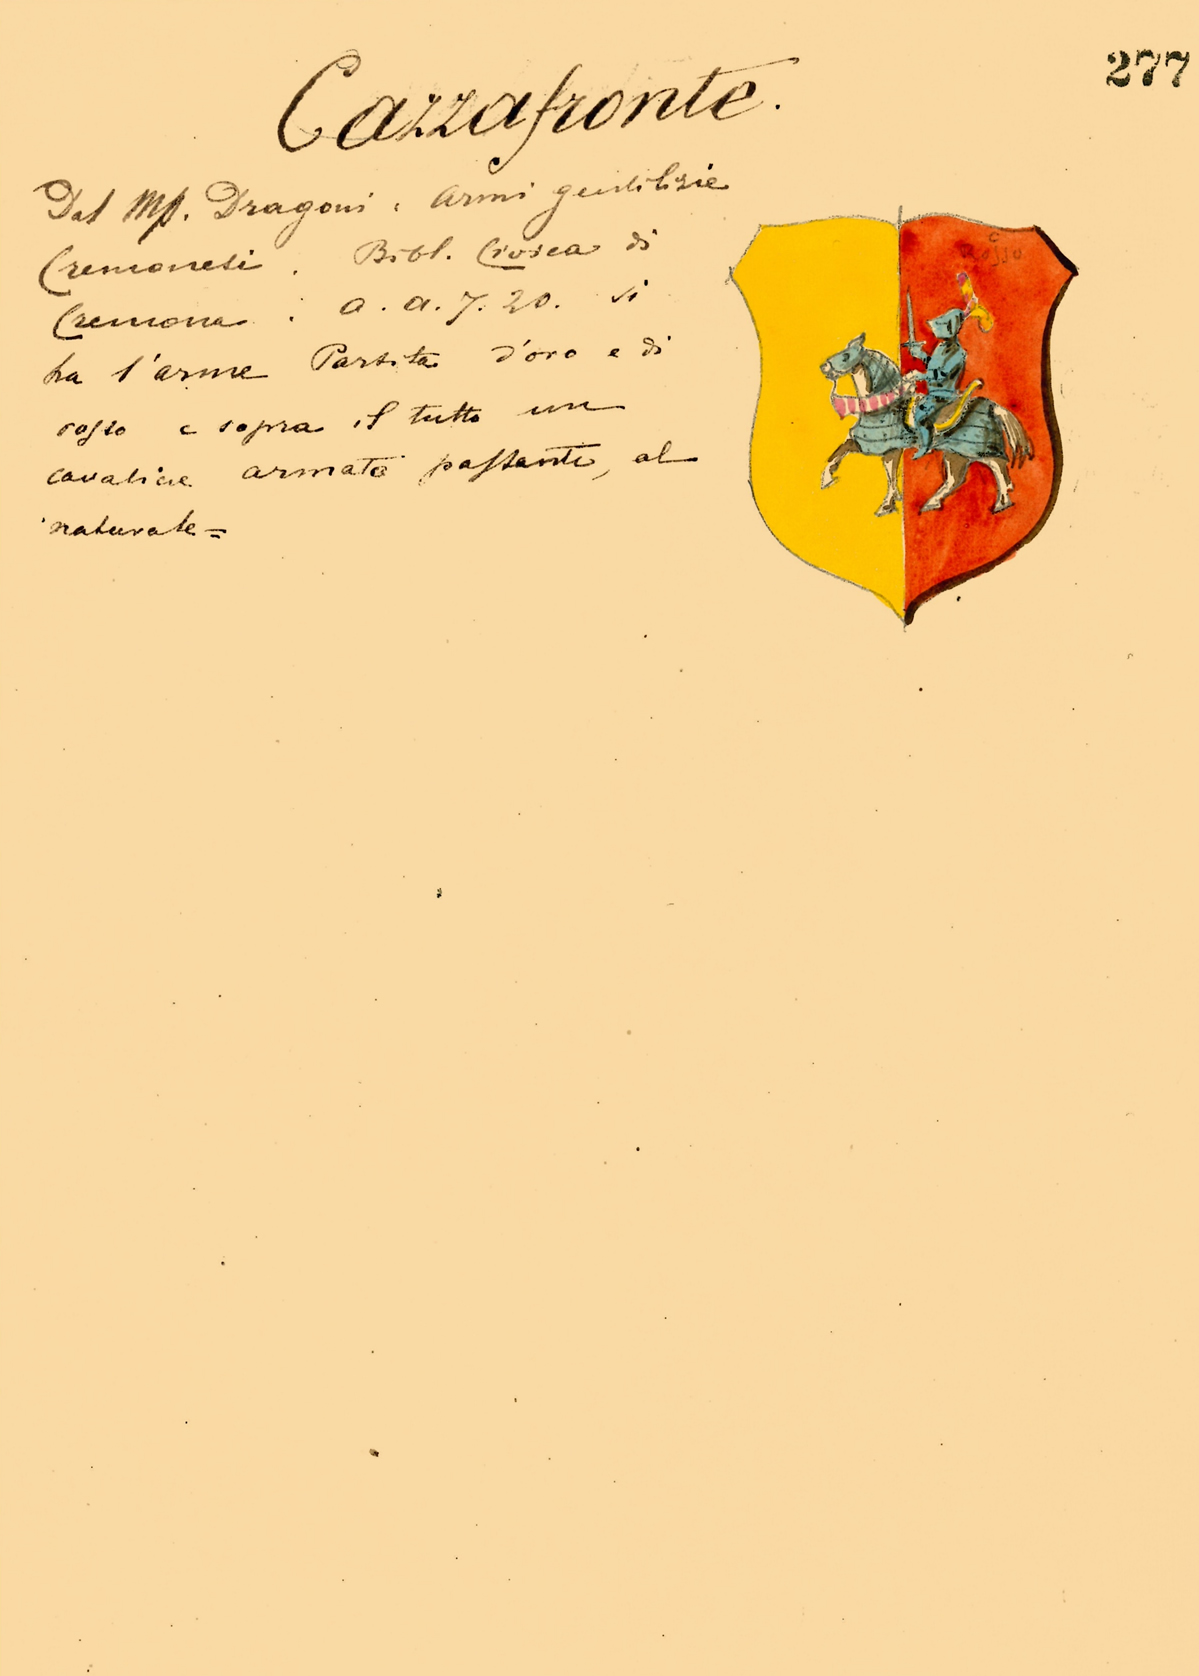 277
Cazzafronte.
Dal Mſ. Dragoni. Armi gentilizie
Cremonesi. Bibl. Civica di
Cremona: a. a. 7. 20. si
ha l'arme Partita d'oro e di
roſso e sopra il tutto un
cavaliere armato paſsante, al
naturale=
Roſso